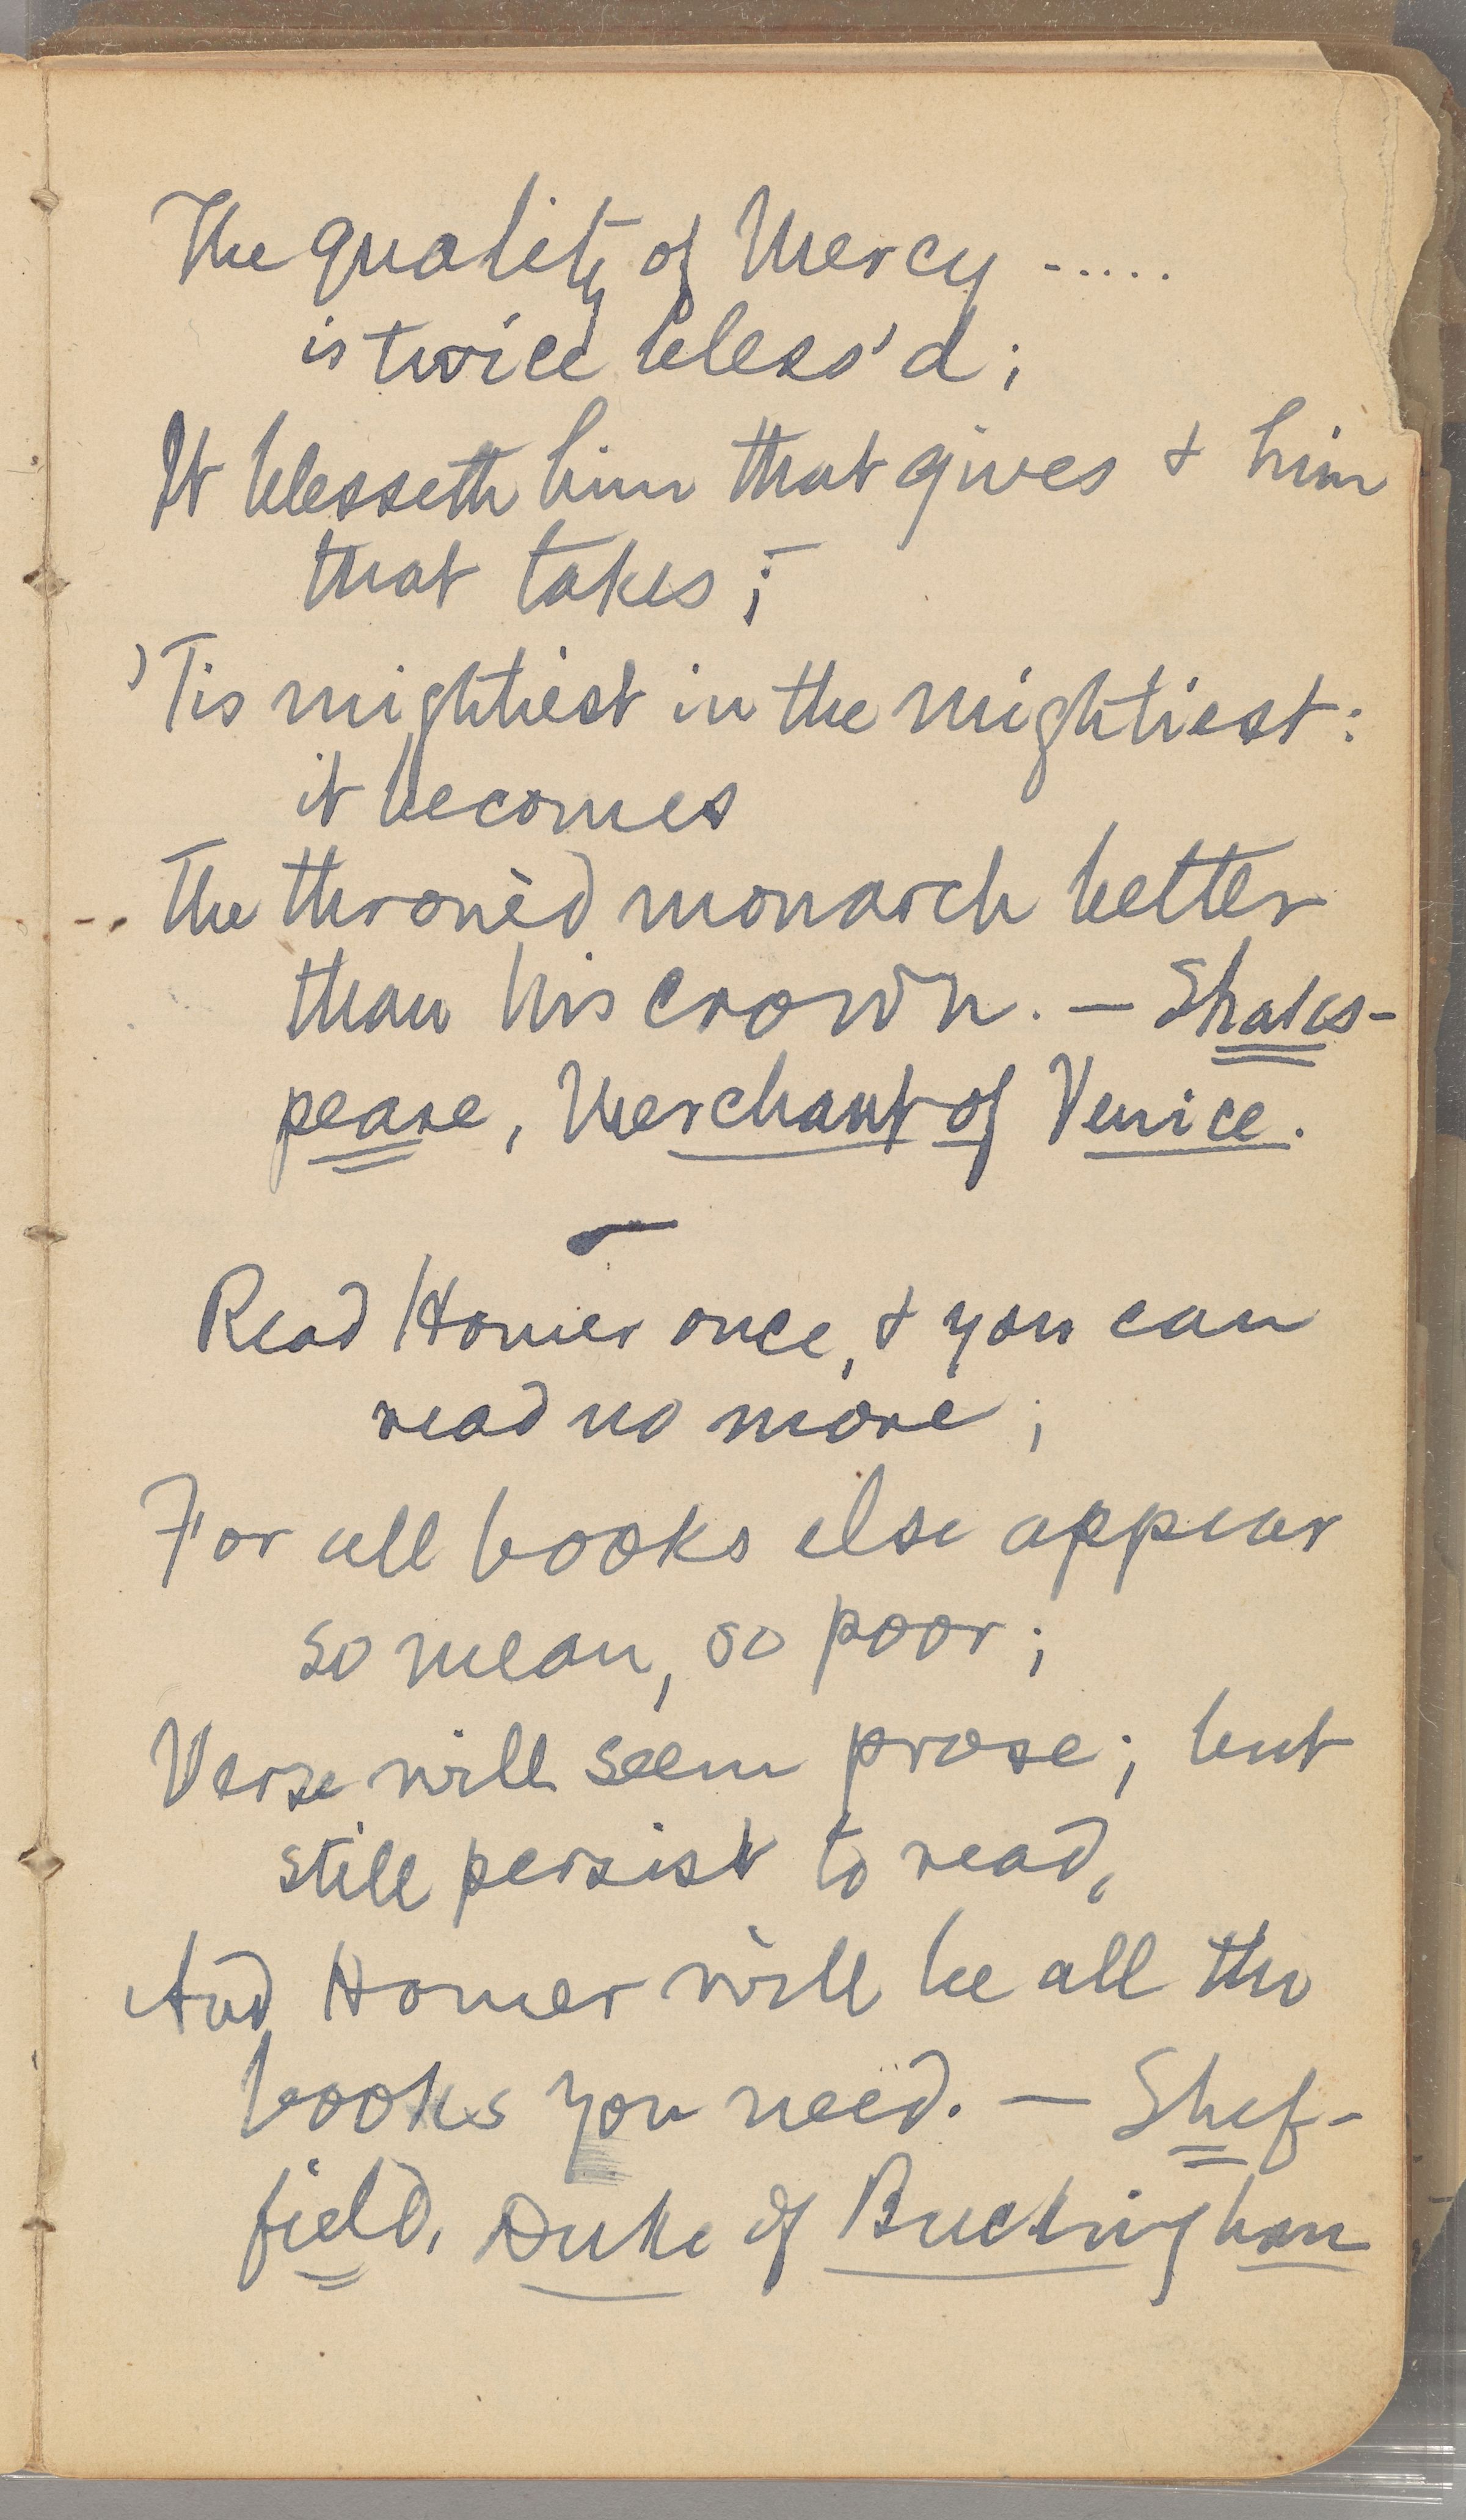 The quality of Mercy .....
is twice bless'd;
It blesseth him that gives & him
that takes;
'Tis mightiest in the mightiest:
it becomes
The thronèd monarch better
than his crown. — Shaks-
peare, Merchant of Venice.
—
Read Homer once, & you can
read no more;
For all books else appear
so mean, so poor;
Verse will seem prose; but
still persist to read,
And Homer will be all the
books you need. — Shef-
field, Duke of Buckingham